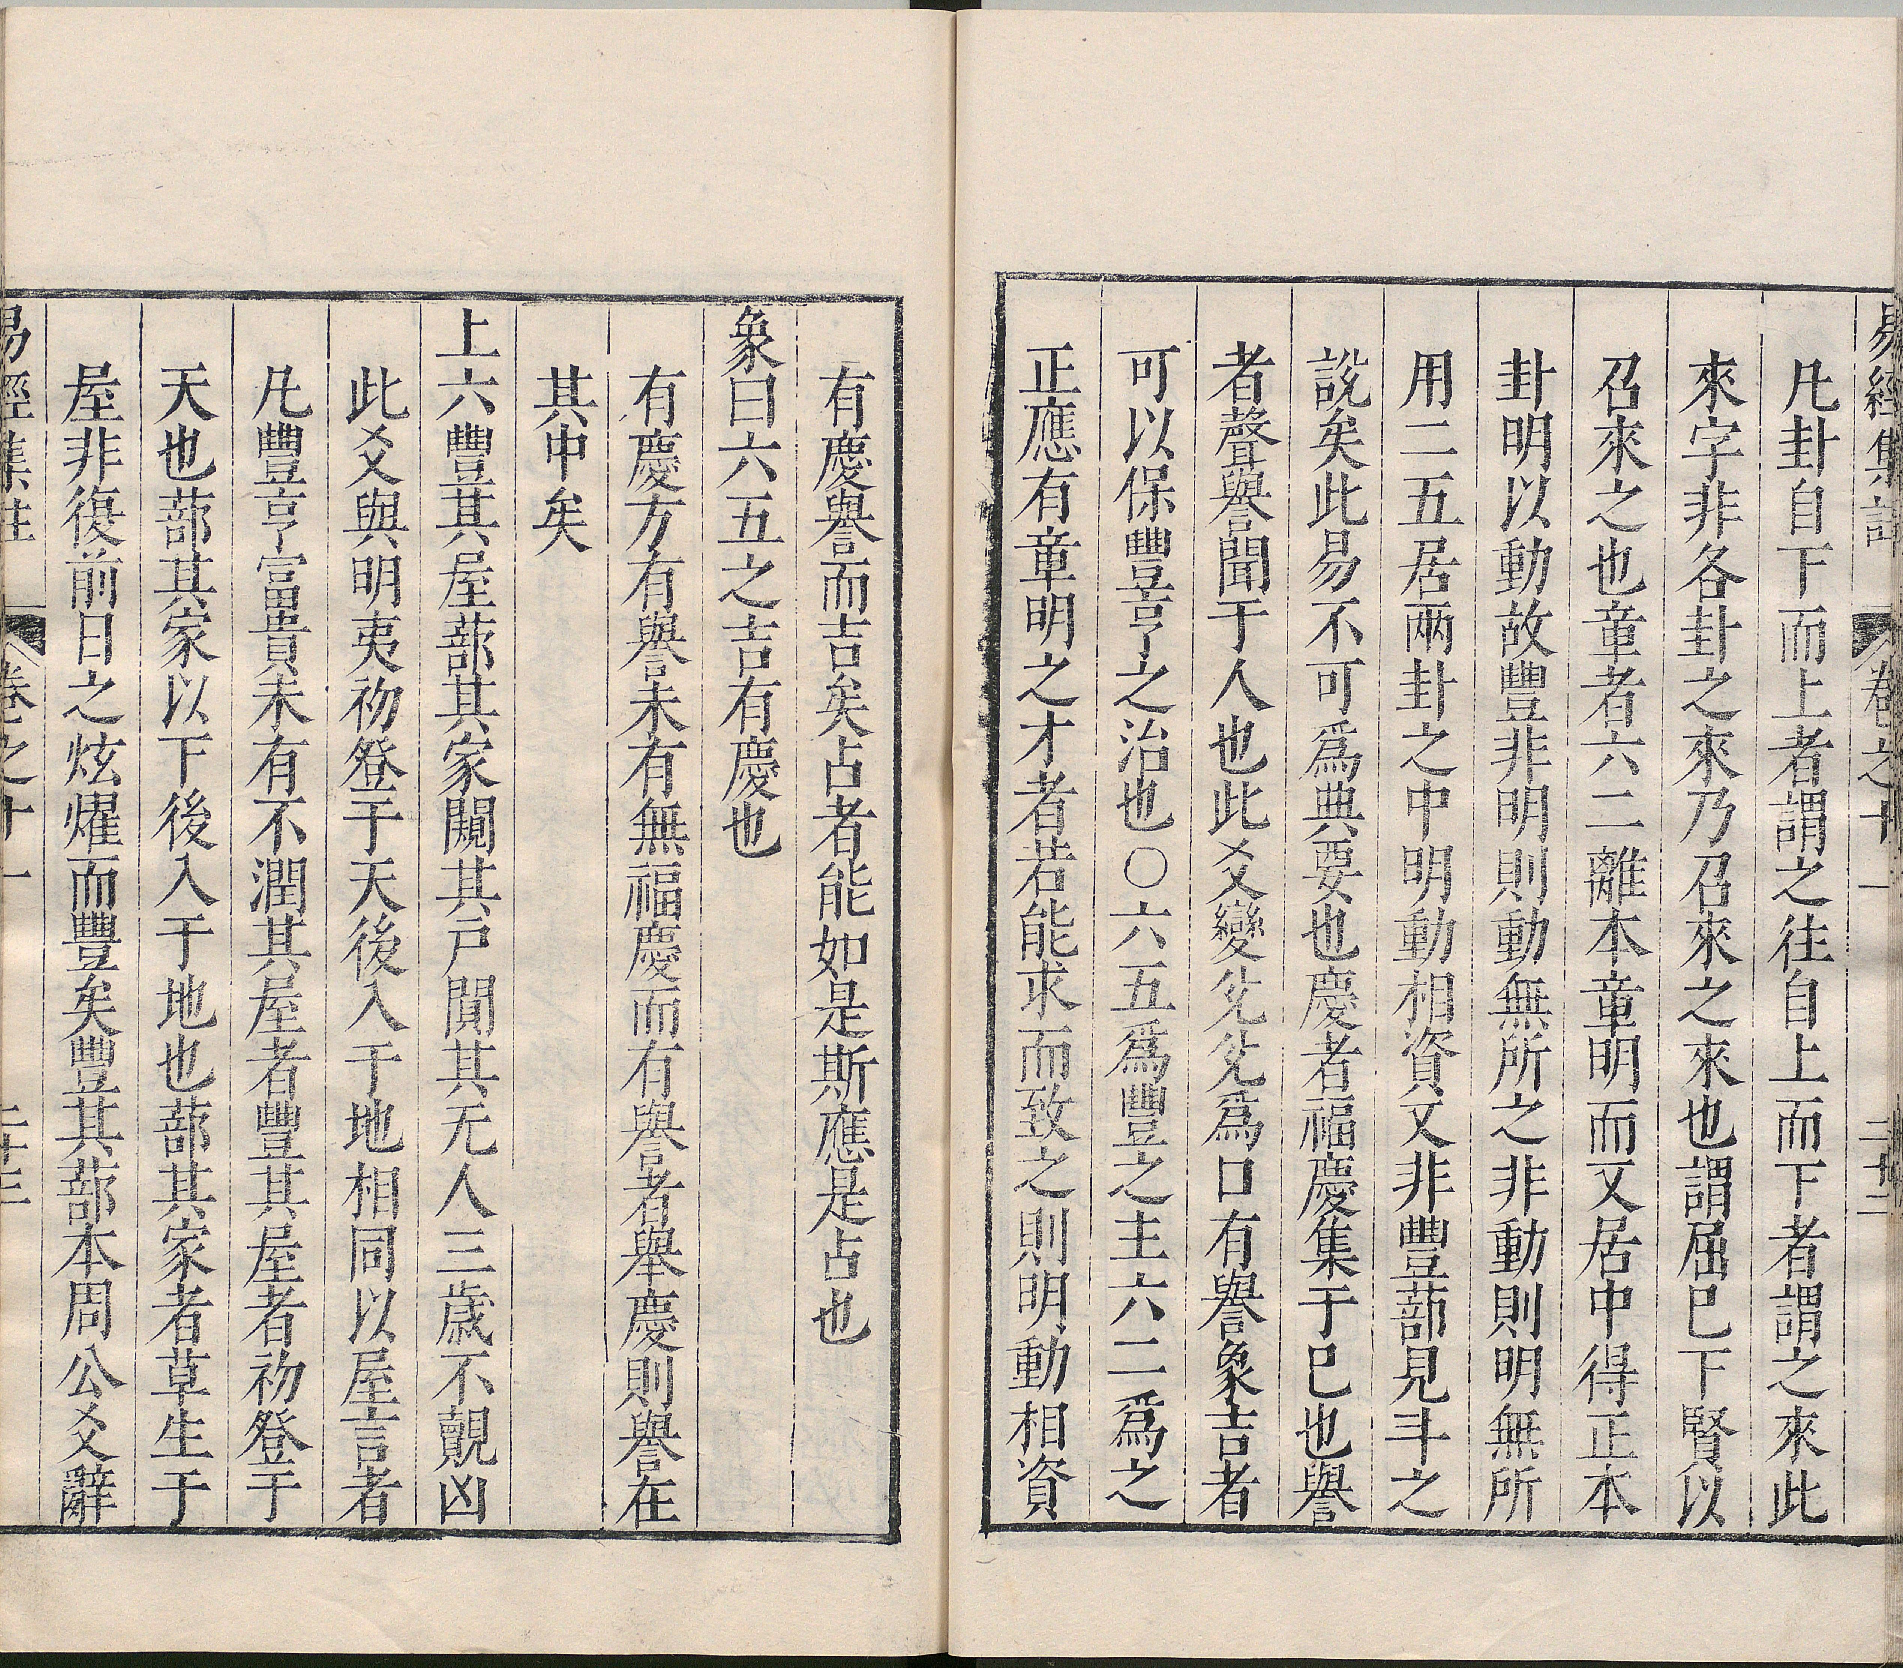 易經集註 卷之十一 二十二
凡卦自下而上者謂之往自上而下者謂之來此
來字非各卦之來乃召來之來也謂屈巳下賢以
召來之也章者六二離本章明而又居中得正本
卦明以動故豐非明則動無所之非動則明無所
用二五居兩卦之中明動相資又非豐蔀見斗之
說矣此易不可爲典要也慶者福慶集于巳也譽
者聲譽聞于人也此爻變兊兊爲口有譽象吉者
可以保豐亨之治也〇六五爲豐之主六二爲之
正應有章明之才者若能求而致之則明動相資
有慶譽而吉矣占者能如是斯應是占也
象曰六五之吉有慶也
有慶方有譽未有無福慶而有譽者舉慶則譽在
其中矣
上六豐其屋蔀其家闚其戸闃其无人三歲不覿凶
此爻與明夷初登于天後入于地相同以屋言者
凡豐亨富貴未有不潤其屋者豐其屋者初登于
天也蔀其家以下後入于地也蔀其家者草生于
屋非復前日之炫燿而豐矣豐其蔀本周公爻辭
易經集註 卷之十一 二十三